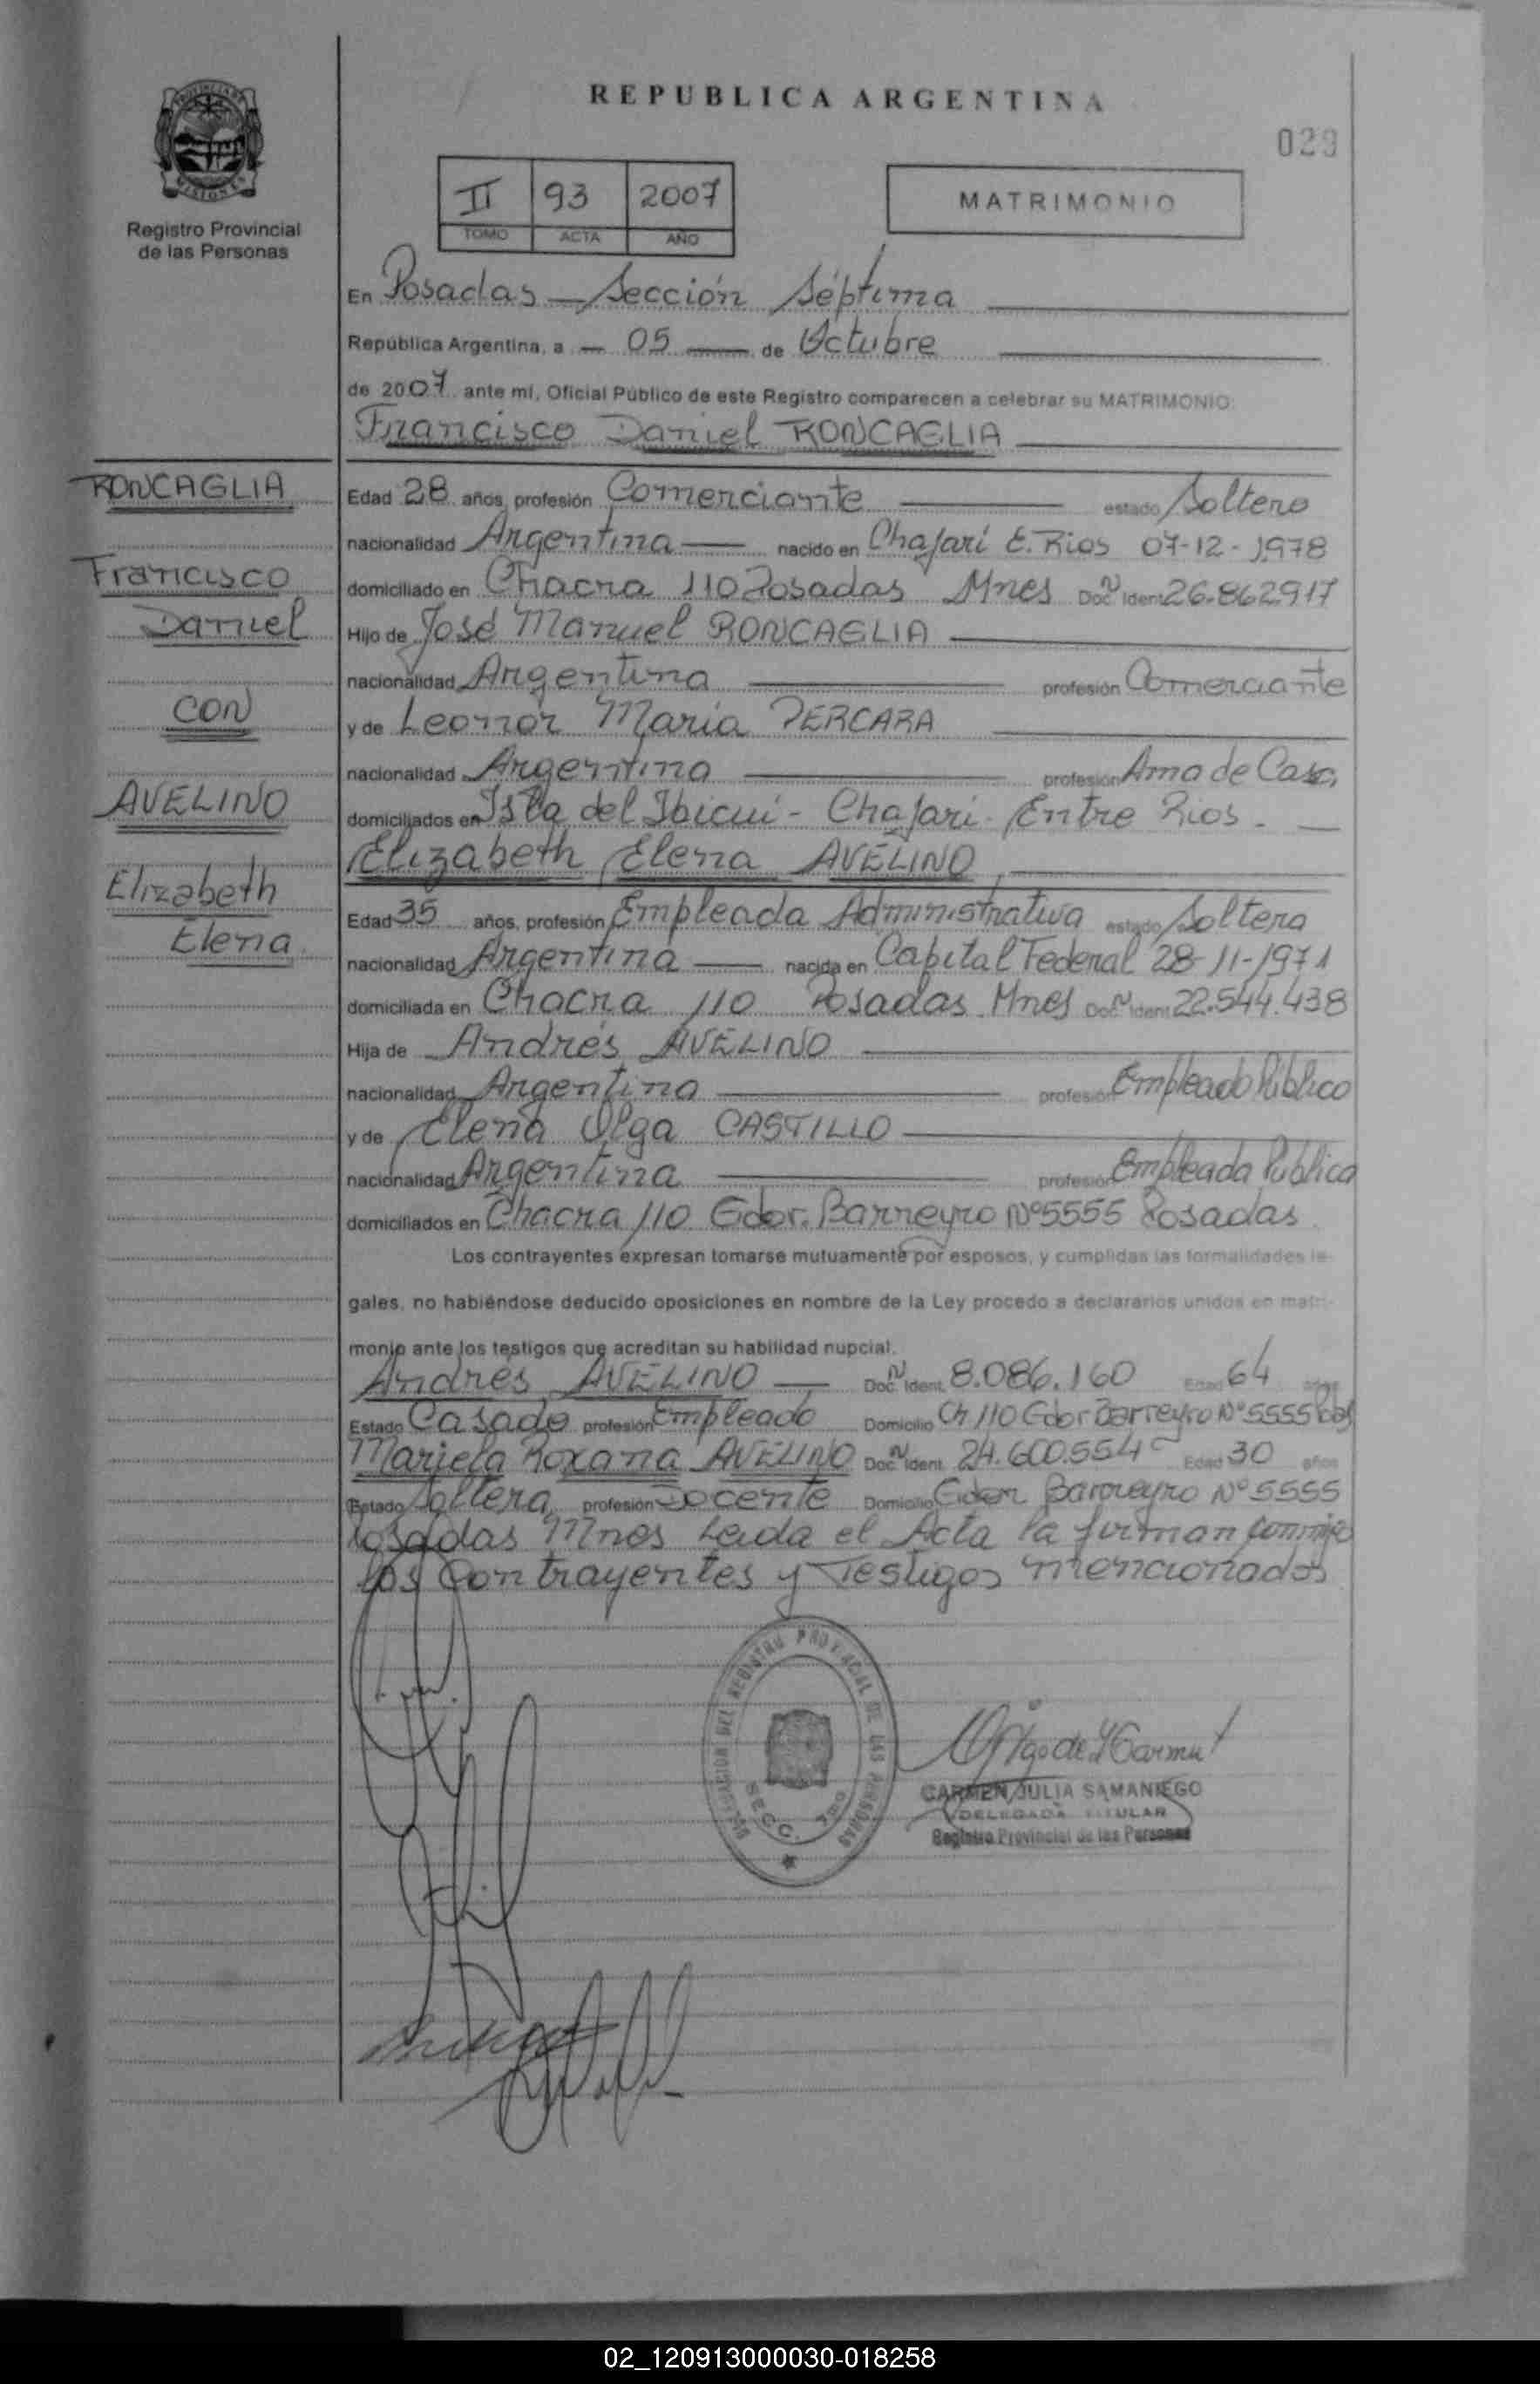 REPUBLICA ARGENTINA
029
II 93 2007
TOMO ACTA AÑO
MATRIMONIO
Registro Provincial
de las Personas
En Posadas — Sección Séptima
República Argentina, a — 05 — de Octubre
de 2007 ante mí, Oficial Público de este Registro comparecen a celebrar su MATRIMONIO:
Francisco Daniel RONCAGLIA
RONCAGLIA
Francisco
Daniel
CON
AVELINO
Elizabeth
Elena
Edad 28 años, profesión Comerciante estado Soltero
nacionalidad Argentina — nacido en Chajarí E. Rios 07-12-1978
domiciliado en Chacra 110 Posadas Mnes Doc. Ident. 26.862917
Hijo de José Manuel RONCAGLIA
nacionalidad Argentina profesión Comerciante
y de Leonor María PERCARA
nacionalidad Argentina profesión Ama de Casa
domiciliados en Isla del Ibicui - Chajari - Entre Rios. —
Elizabeth Elena AVELINO
Edad 35 años, profesión Empleada Administrativa estado Soltera
nacionalidad Argentina — nacida en Capital Federal 28-11-1971
domiciliada en Chacra 110 Posadas Mnes Doc. Ident. 22.544.438
Hija de Andrés AVELINO
nacionalidad Argentina profesión Empleado Público
y de Elena Olga CASTILLO
nacionalidad Argentina profesión Empleada Publica
domiciliados en Chacra 110 Gdor. Barreyro Nº 5555 Posadas
Los contrayentes expresan tomarse mutuamente por esposos, y cumplidas las formalidades le-
gales, no habiéndose deducido oposiciones en nombre de la Ley procedo a declararlos unidos en matri-
monio ante los testigos que acreditan su habilidad nupcial.
Andrés AVELINO — Doc. Ident. 8.086.160 Edad 64 años
Estado Casado profesión Empleado Domicilio Ch 110 Gdor Barreyro Nº 5555
Mariela Roxana AVELINO Doc. Ident. 24.600.554 Edad 30 años
Estado Soltera profesión Docente Domicilio Gdor Barreyro Nº 5555
Posadas Mnes Leida el Acta la firman conmigo
los Contrayentes y Testigos mencionados
DELEGACION DEL REGISTRO PROVINCIAL DE LAS PERSONAS
SECC. 7ma
CARMEN JULIA SAMANIEGO
DELEGADA TITULAR
Registro Provincial de las Personas
02_120913000030-018258